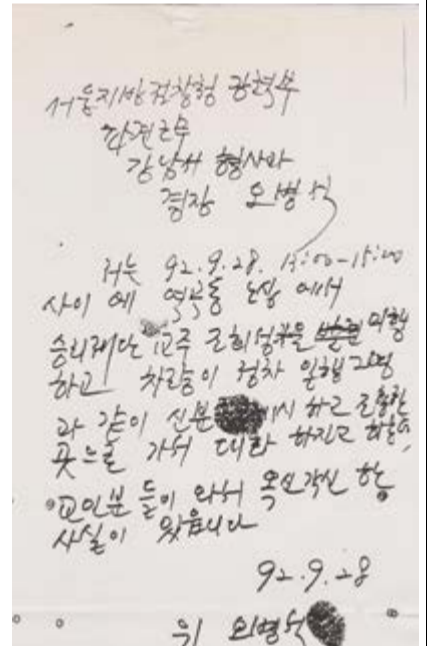 서울지방검찰청 강력부
파견근무
강남서 형사과
경장 오병석
저는 92.9.28. 13:00-15:00
사이에 역삼동 노상에서
승리제단 교주 조희성을 미행
하고 차량이 정차 일행
과 같이 신분 제시하고 조용한
곳으로 가서 대화 하자고 하는데,
교인분들이 와서 옥신각신 한
사실이 있읍니다
92.9.28
위 오병석